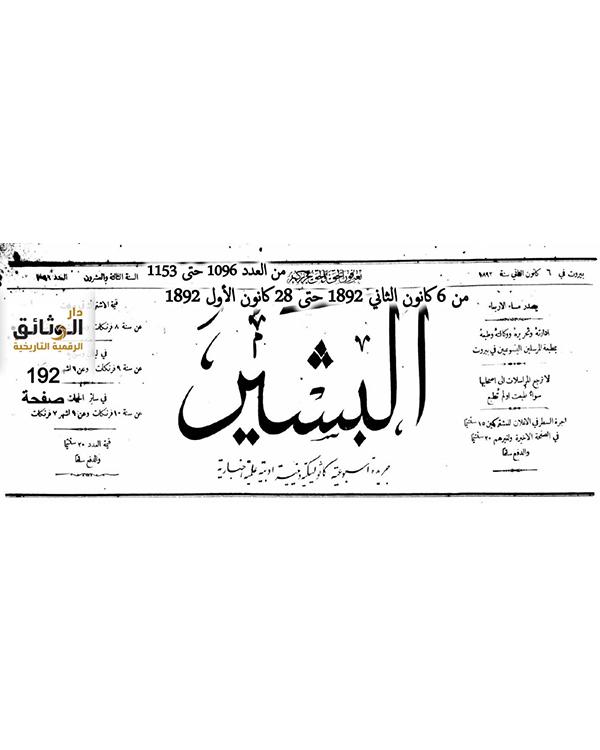 بيروت في ٦ كانون الثاني سنة ١٨٩٢
تعرفون الحق والحق يحرركم
من العدد 1096 حتى 1153
السنة الثالثة والعشرون
العدد ١٠٩٦
من 6 كانون الثاني 1892 حتى 28 كانون الأول 1892
يصدر مساء الاربعاء
ادارته وتحريره ووكالته وطبعه
بمطبعة المرسلين اليسوعيين في بيروت
لا ترجع المراسلات الى اصحابها
سواء طبعت او لم تطبع
اجرة السطر في الاعلان للمشتركين ١٥ سنتيما
في الصفحة الاخيرة ولغيرهم ٢٠ سنتيما
والدفع سلفا
البشير
جريدة اسبوعية كاثوليكية دينية ادبية علمية اخبارية
قيمة الاشتراك
دار
الوثائق
الرقمية التاريخية
عن سنة ٨ فرنكات
عن سنة ٩ فرنكات وعن ٦ اشهر
192
صفحة
في سائر الجهات
عن سنة ١٠ فرنكات وعن ٦ اشهر ٧ فرنكات
قيمة العدد ٢٠ سنتيما
والدفع سلفا